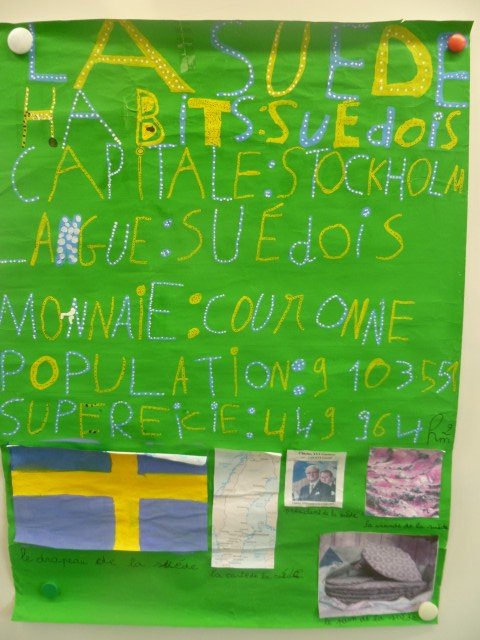 LA SUEDE
HABITS:SUEdois
CAPITALE:STOCKHOLM
LANGUE:SUÉdois
MONNAIE:COURONNE
POPULATION:9 103551
SUPEREICIE:449 964 Km2
le drapeau de la suède
la carte de la suède
la viande de la suède
le pain de la suède